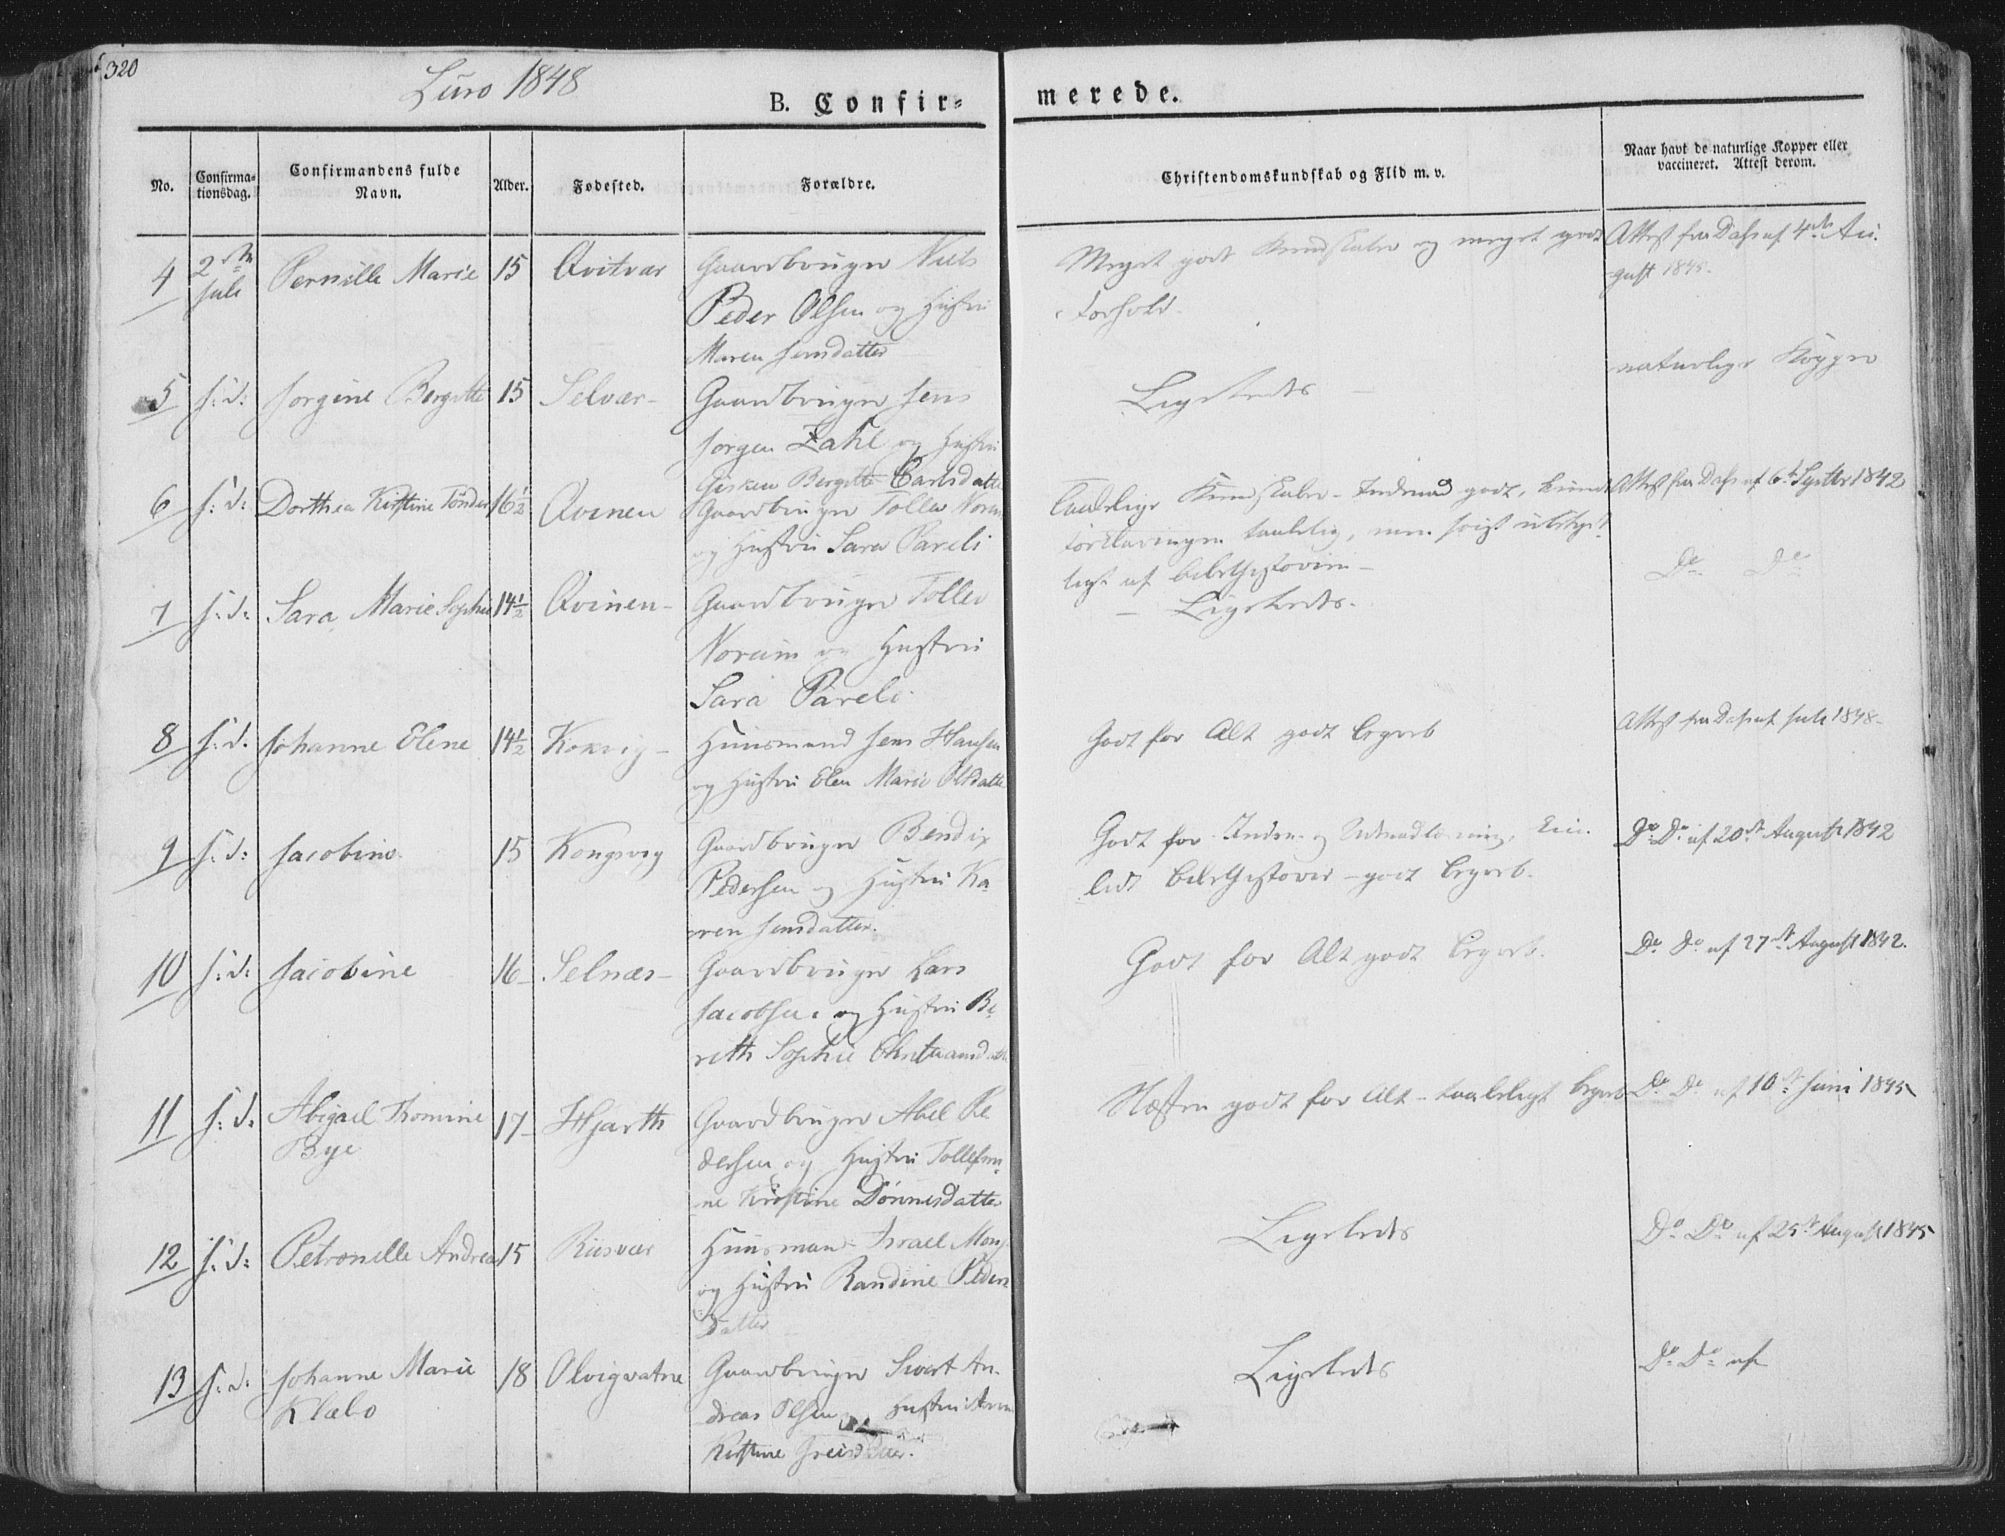 320
Lurø 1848
B. Confir=
merede.
No.
Confirma-
tionsdag.
Confirmandens fulde
Navn.
Alder.
Fødested.
Forældre.
Christendomskundskab og Flid m. v.
Naar havt de naturlige Kopper eller
vaccineret. Attest derom.
4
2den
Juli
Pernille Marie
15
Qvitvær
Gaardbruger Niels
Peder Olsen og Hustru
Maren Jensdatter
Meget god Kundskaber og meget godt
Forhold.
Attest fra Dass af 4de Au-
gust 1845.
5
s: d:
Jørgine Bergitte
15
Selvær-
Gaardbruger Jens
Jørgen Zahl og Hustru
Gisken Bergitte Carlsdatter
Ligeledes
naturlige Kopper
6
s: d:
Dorthea Kirstine Tønder
16½
Qvinen
Gaardbruger Tollev Norum
og Hustru Sara Pareli
Taalelige Kundskaber - Indenad godt,
Forklaringen taalelig, men
af Bibelhistorien -
Attest fra Dass af 6te Septbr 1842
7
s: d:
Sara Marie Sophie
14½
Qvinen-
Gaardbruger Tollev
Norum og Hustru
Sara Pareli
- Ligeledes.
Do Do
8
s: d.
Johanne Elene
14½
Konsvig-
Huusmand Jens Hansen
og Hustru Elen Marie Olsdatter
Godt for Alt godt Begreb
Attest fra Dass af Juli 1848-
9
s: d:
Jacobine
15
Kongsvig
Gaardbruger Bendix
Pedersen og Hustru Ka-
ren Jensdatter.
Godt for Inden- og Udenadlæsning,
Bibelhistorie - godt Begreb.
Do Do af 20de August 1842
10
s: d:
Jacobine
16-
Selnæs-
Gaardbruger Lars
Jacobsen og Hustru Be-
reth Sophie
Godt for Alt godt Begreb.
Do Do af 27de August 1842.
11
s: d:
Abigael Thomine
Bye
17-
Hjarth
Gaardbruger Abel Pe-
dersen og Hustru Tollefin-
ne Kirstine Dønnesdatter
Næsten godt for Alt - taaleligt Begreb
Do Do af 10de Juni 1845
12
s: d:
Petronelle Andrea
15
Riisvær
Huusmand Israel Mons
og Hustru Randine Peders
datter
Ligeledes
Do Do af 25de August 1845
13
s: d:
Johanne Marie
Klæbo
18
Olvigvatne
Gaardbruger Sivert An-
dreas Olsen og Hustru
Kirstine
Ligeledes
Do Do af